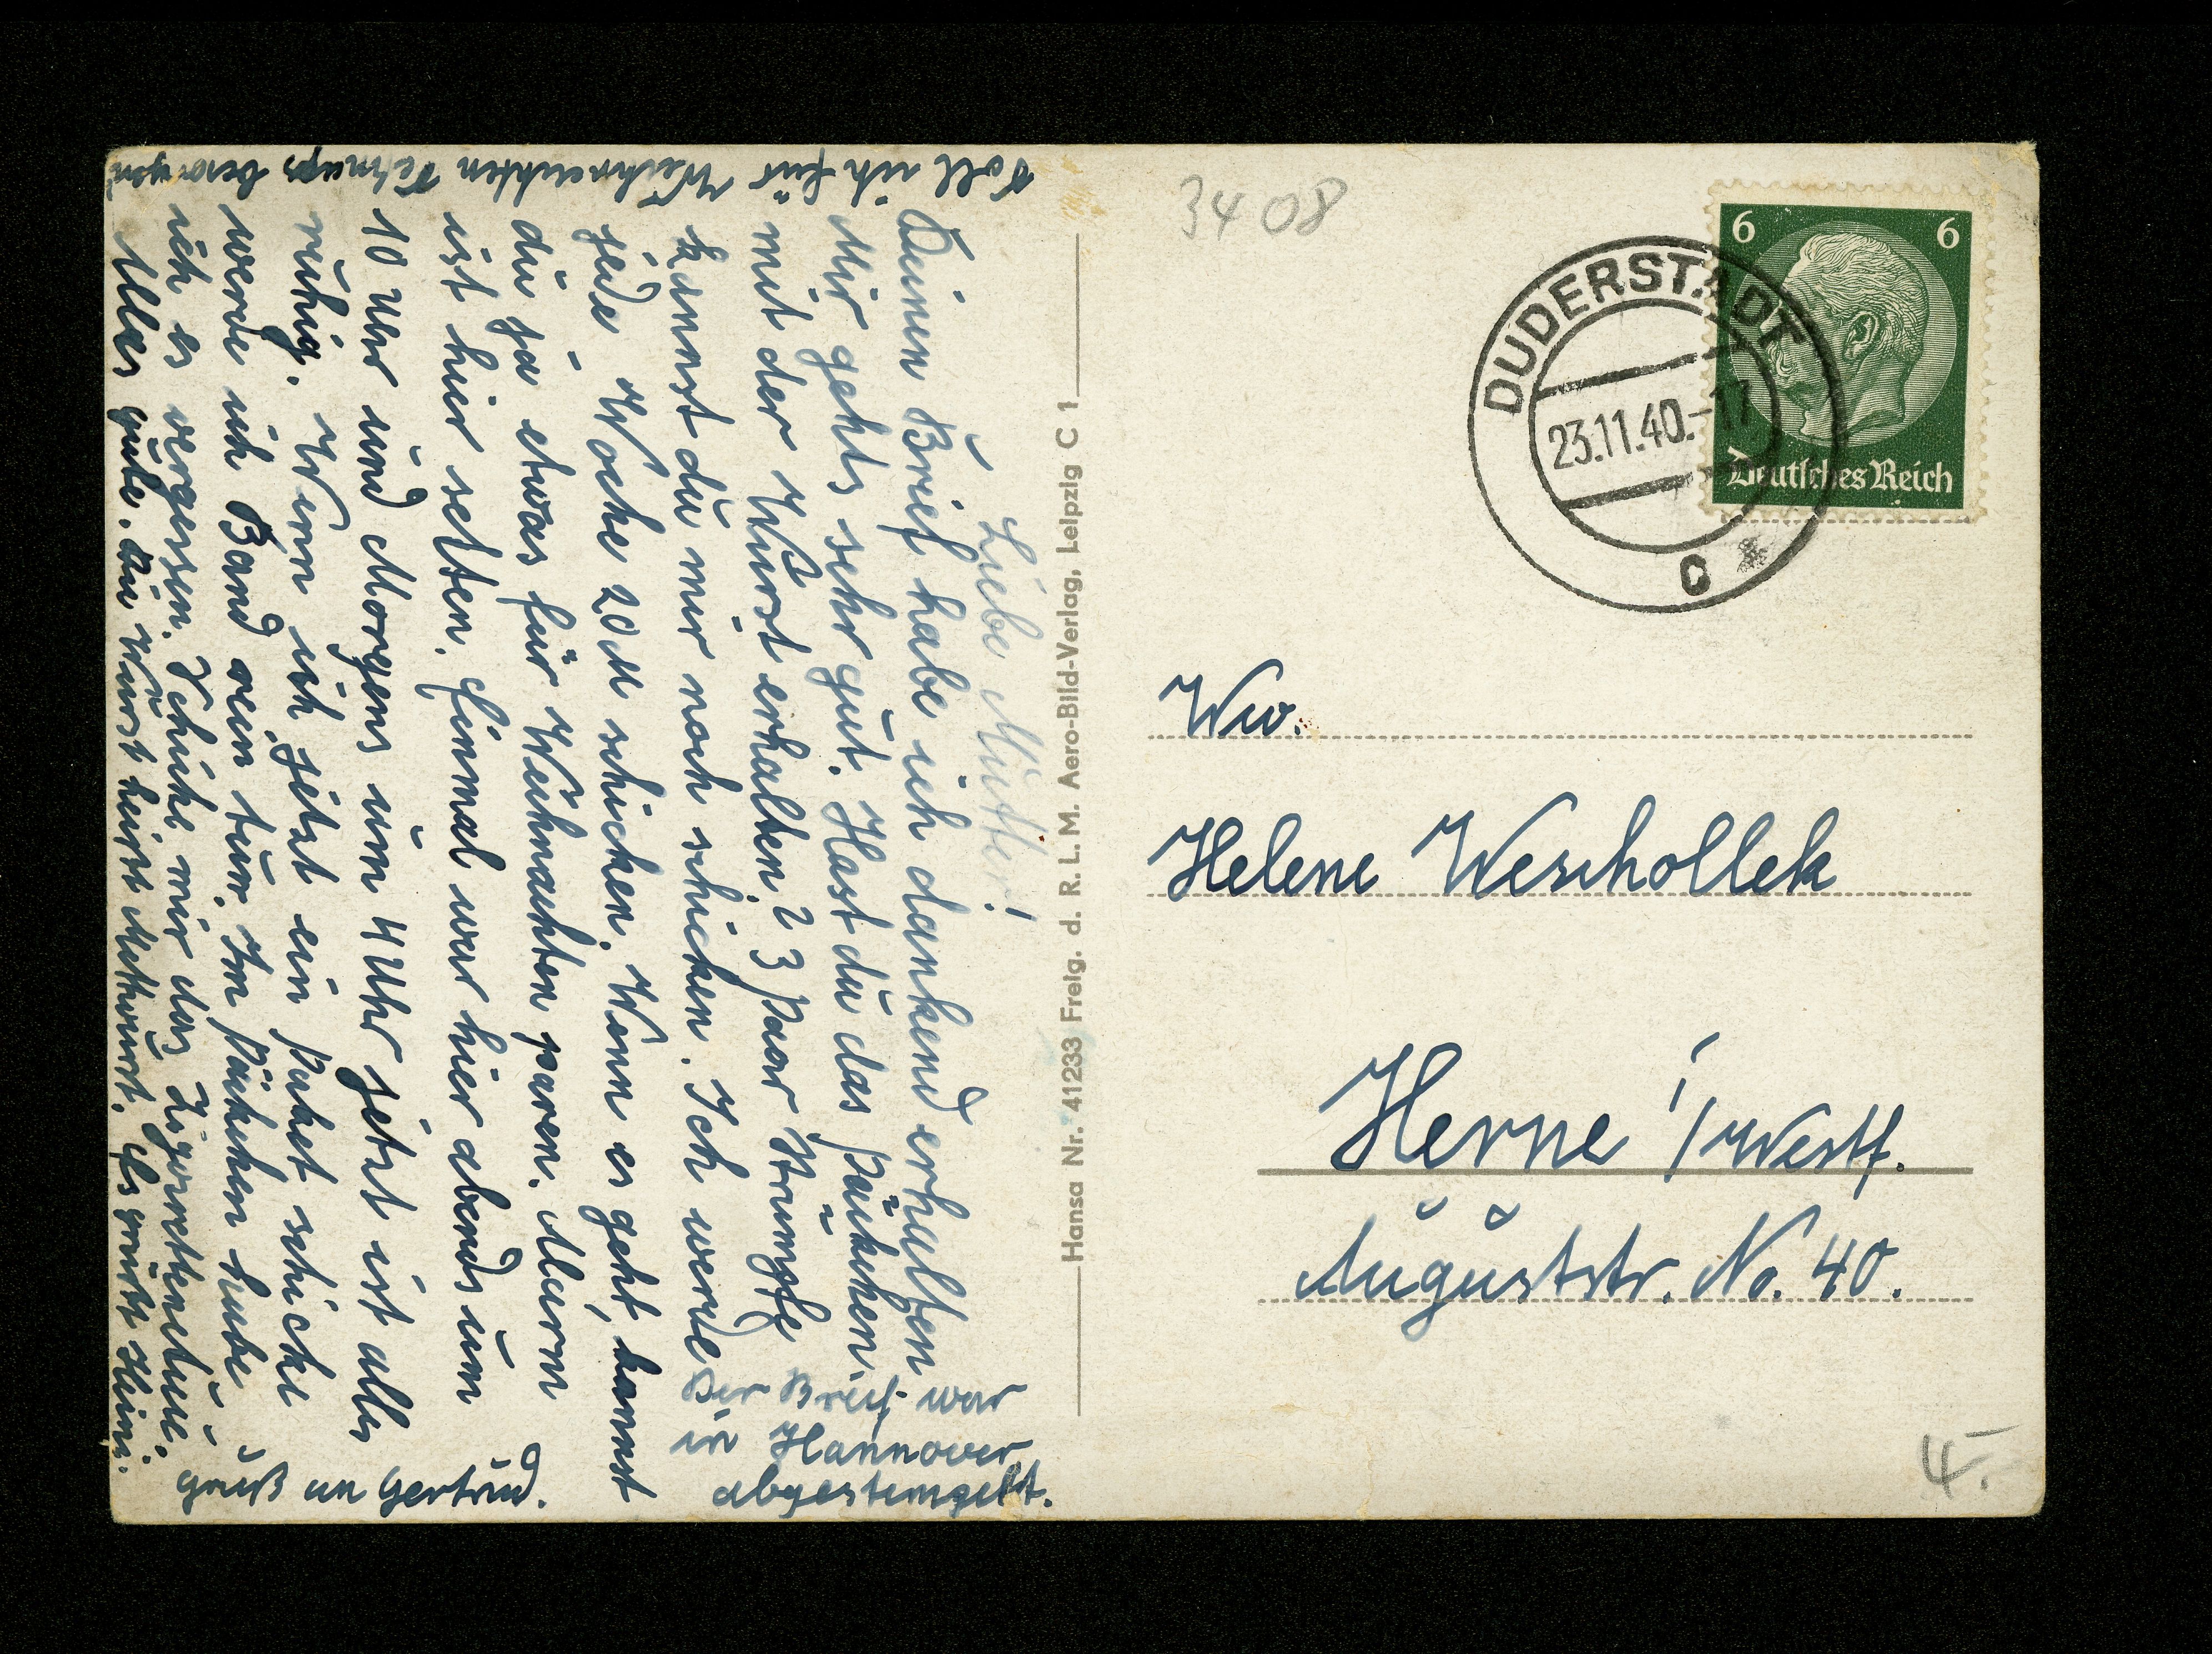 Liebe Mutter!
Deinen Brief habe ich dankend erhalten
Mir gehts sehr gut. Hast du das Päckchen
mit der Wurst erhalten? 3 Paar Strümpfe
kannst du mir noch schicken. Ich werde
jede Woche 20 M schicken. Wenn es geht, kannst
du ja etwas für Weihnachten paren. Alarm
ist hier selten. Einmal war hier abends um
10 Uhr und Morgens um 4 Uhr jetzt ist alles
ruhig. Wenn ich jetzt ein Paket schicke
werde ich Band rein tun. Im Päckchen habe
ich es vergessen. Schicke mir das Zigarettenetui.
Alles gute. Die Wurst heist Mettwurst. Es grüßt Heini.
Gruß an Gertrud.
Der Brief war
in Hannover
abgestempelt.
Soll ich für Weihnachten Schnaps besorgen
Hansa Nr. 41233 Freig. d. R. L. M. Aero-Bild-Verlag, Leipzig C 1
3408
6 6
Deutsches Reich
DUDERSTADT
23.11.40.-17
c
Ww.
Helene Weschollek
Herne i/Westf.
Auguststr. No. 40.
4.-